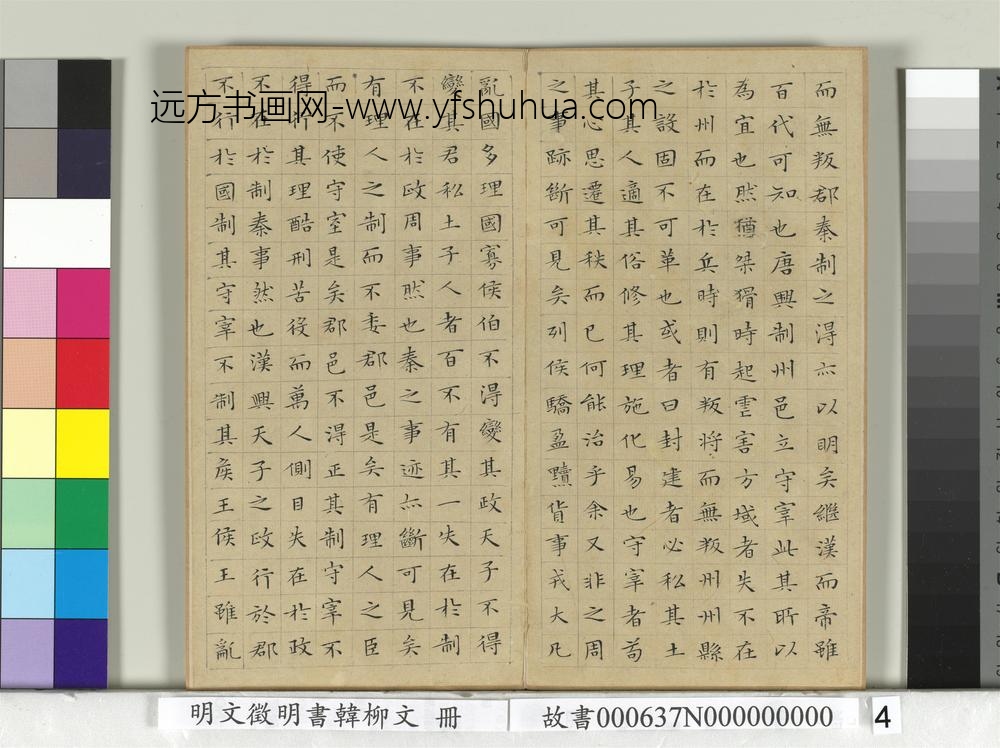 而無叛郡秦制之得亦以明矣繼漢而帝雖
百代可知也唐興制州邑立守宰此其所以
為宜也然猶桀猾時起虐害方域者失不在
於州而在於兵時則有叛將而無叛州州縣
之設固不可革也或者曰封建者必私其土
子其人適其俗修其理施化易也守宰者苟
其心思遷其秩而已何能治乎余又非之周
之事跡斷可見矣列侯驕盈黷貨事戎大凡
亂國多理國寡侯伯不得變其政天子不得
變其君私土子人者百不有其一失在於制
不在於政周事然也秦之事迹亦斷可見矣
有理人之制而不委郡邑是矣有理人之臣
而不使守宰是矣郡邑不得正其制守宰不
得行其理酷刑苦役而萬人側目失在於政
不在於制秦事然也漢興天子之政行於郡
不行於國制其守宰不制其侯王侯王雖亂
远方书画网-www.yfshuhua.com
明文徵明書韓柳文 冊
故書000637N000000000
4